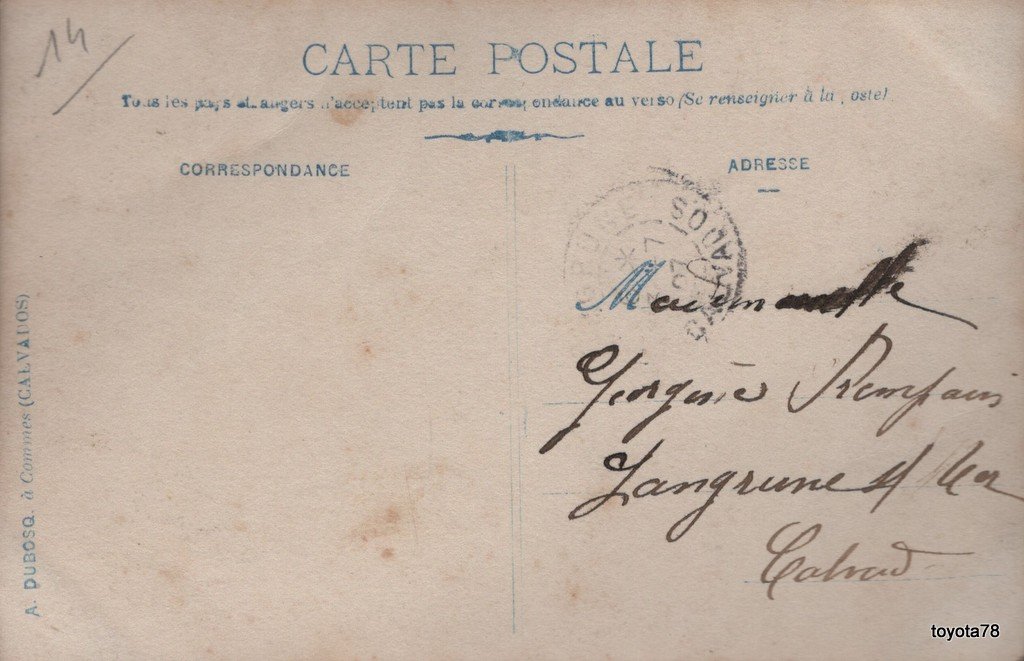 14
CARTE POSTALE
Tous les pays étrangers n'acceptent pas la correspondance au verso (Se renseigner à la poste).
CORRESPONDANCE
ADRESSE
LANGRUNE
CALVADOS
07
Mademoiselle
Georgine
Langrune s/ Mer
Calvados
A. DUBOSQ. à Commes (CALVADOS)
toyota78